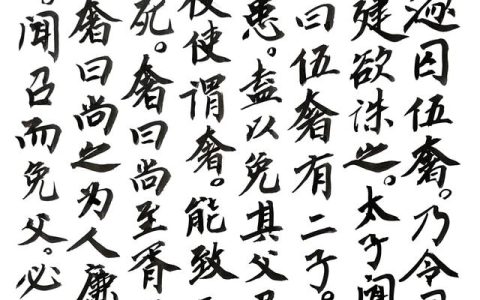 遂囚伍奢。乃令
建欲诛之。太子闻
曰伍奢有二子。
患。盍以免其父
使使谓奢。能致
死。奢曰尚至胥
奢曰尚之为人廉
。闻召而免父。必